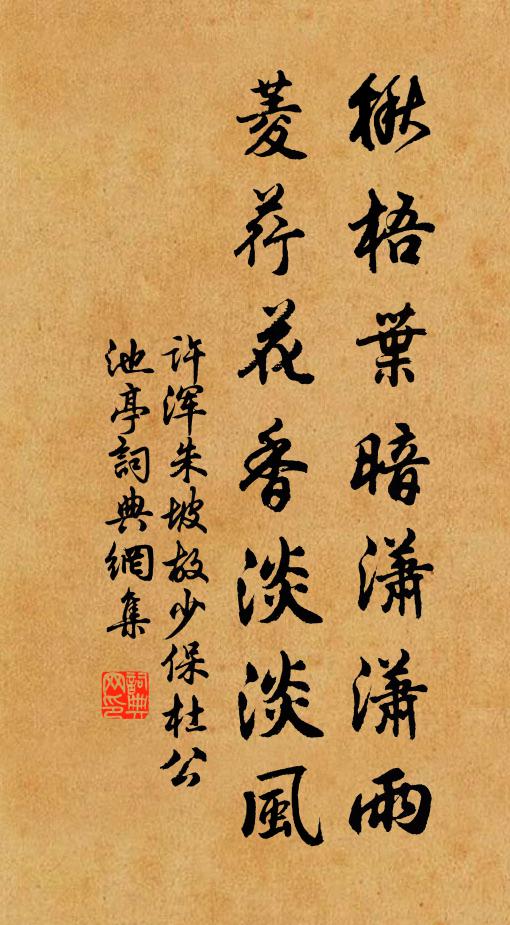 楸梧葉暗瀟瀟雨
菱荇花香淡淡風
许渾朱坡故少保杜公
池亭詞典網集
詞典网印